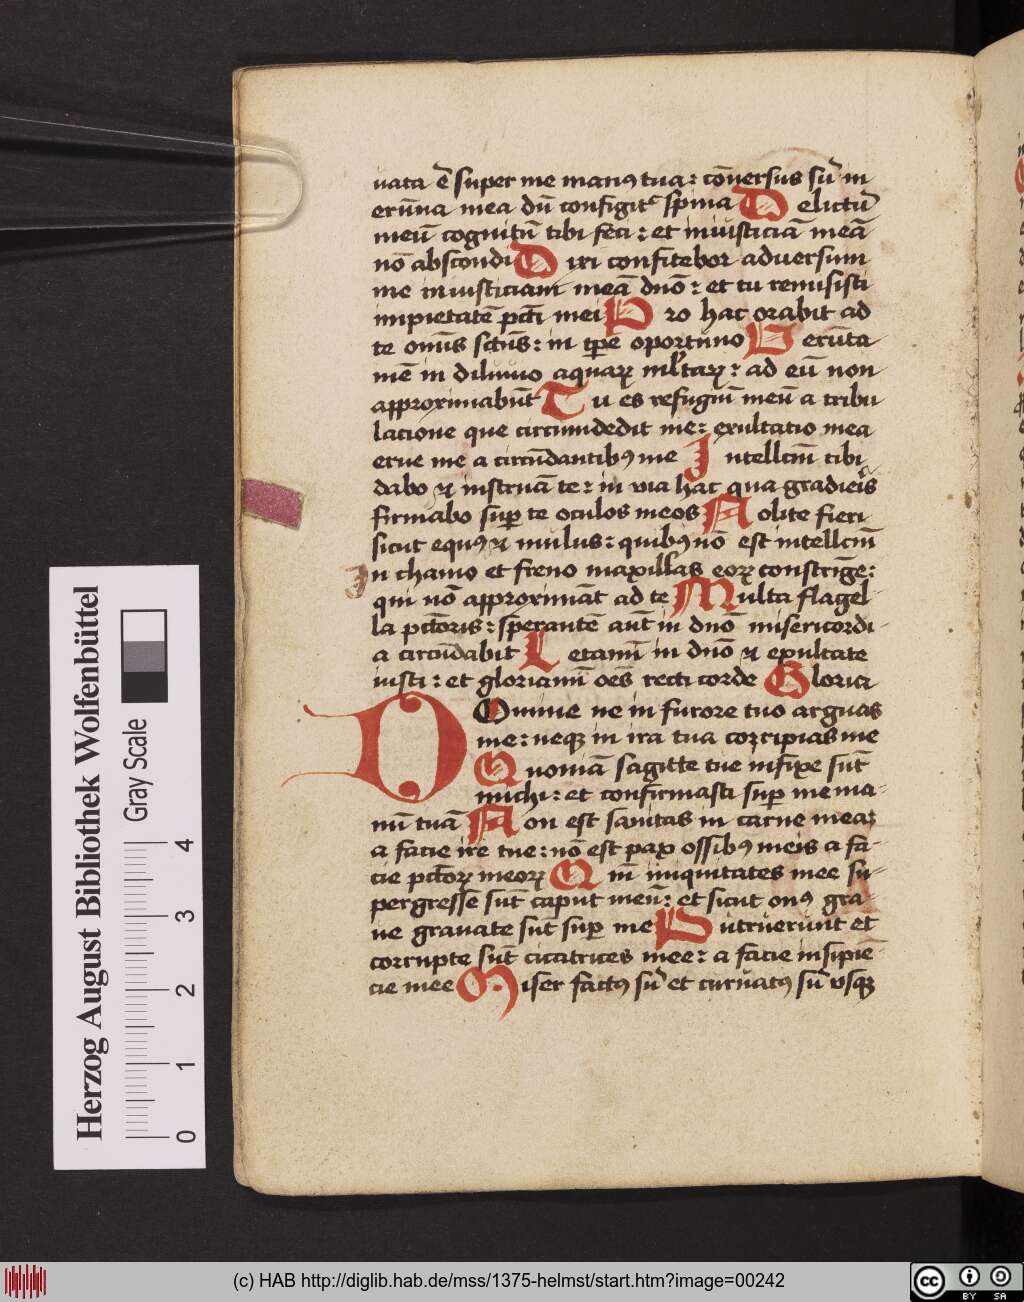 uata ē super me manꝰ tua: cōuersus sū in
erūna mea dū configit᷑ spina Delictū
meū cognitū tibi feci: et iniusticiā meā
nō abscondi Dixi confitebor aduersum
me iniusticiam meā dnō: et tu remisisti
impietatē pctī mei Pro hac orabit ad
te omīs sctūs: in tpē oportuno Uerūta
mē in diluuio aquaꝝ mltaꝝ: ad eū non
approximabūt Tu es refugiū meū a tribu
lacione que circumdedit me: exultatio mea
erue me a circūdantibꝰ me Intellcm̄ tibi
dabo ⁊ instruā te: in via hac qua gradieris
firmabo suꝑ te oculos meos Nolite fieri
sicut equꝰ ⁊ mulus: quibꝰ nō est intellcm̄
In chamo et freno maxillas eoꝝ constrīge:
qui nō approximāt ad te Multa flagel-
la pctōris: sperantē aūt in dnō misericordi-
a circūdabit Letamī in dnō ⁊ exultate
iusti: et gloriamī oēs recti corde Gloria
Domine ne in furore tuo arguas
me: neqꝫ in ira tua corripias me
Quoniā sagitte tue infixe sūt
michi: et confirmasti suꝑ me ma-
nū tuā Non est sanitas in carne mea:
a facie ire tue: nō est pax ossibꝰ meis a fa-
cie pctōꝝ meoꝝ Qm̄ iniquitates mee su-
pergresse sūt caput meū: et sicut onꝰ gra-
ue grauate sūt suꝑ me Putruerunt et
corrupte sūt cicatrices mee: a facie insipiē
cie mee Miser factꝰ sū et curuatꝰ sū vsqꝫ
Herzog August Bibliothek Wolfenbüttel
Gray Scale
0 1 2 3 4
(c) HAB http://diglib.hab.de/mss/1375-helmst/start.htm?image=00242
cc BY SA